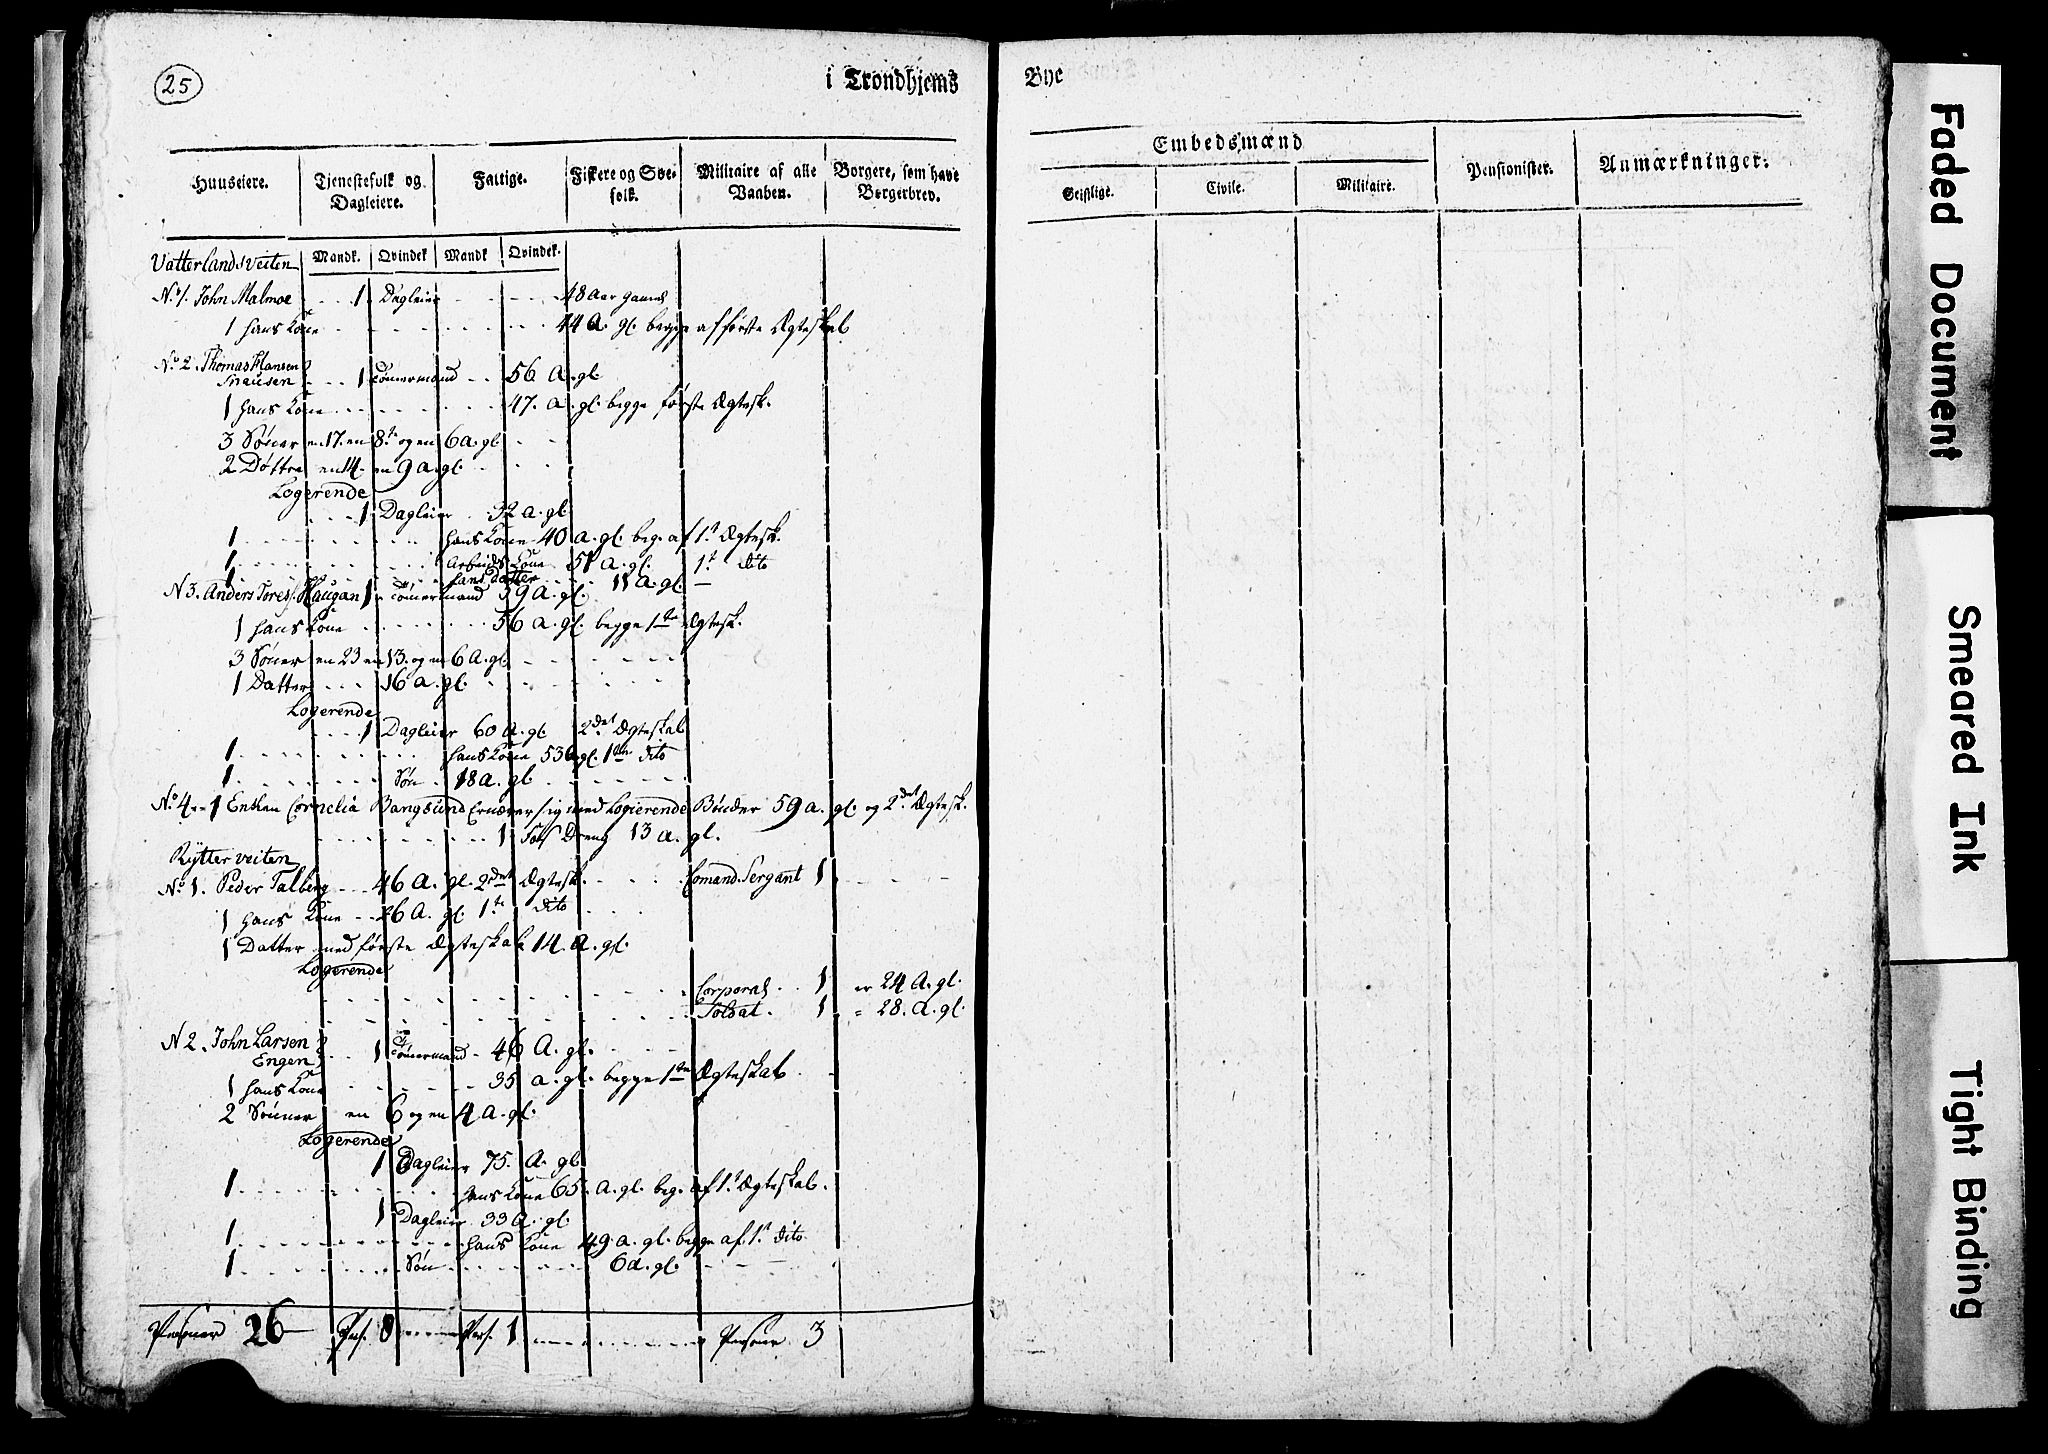 25
i Trondhjems
Bye
Huuseiere. Tjenestefolk og Dagleiere. Fattige. Fiskere og Søefolk. Militaire af alle Vaaben. Borgere, som have Borgerbrev.
Embedsmænd Pensionister. Anmærkninger.
Geistlige. Civile. Militaire.
Mandk. Qvindek Mandk Qvindek.
Vatterlandsveiten
No 1. John Malmoe 1 Dagleier 48 Aar gamel
1 hans Kone 44 A. gl. begge af første Ægteskab
No 2. Thomas Hansen
Snausen 1 Tömermand 56 A. gl.
1 hans Kone 47. a. gl. begge første Ægtesk.
3 Sönner en 17. en 8te og en 6 a. gl.
2 Døttre en 14. en 9 a. gl.
Logerende
1 Dagleier 32 a. gl.
1 hans Kone 40 a. gl. beg. af 1t Ægtesk.
1 Arbeids Kone 51 a. gl. 1t dito
1 hans Datter 11 a. gl.
N 3. Anders Haugan 1 Tömermand 59 a. gl.
1 hans Kone 56 a. gl. begge 1te Ægtesk.
3 Sönner en 23 en 13. og en 6 a. gl.
1 Datter 16 a. gl.
Logerende
1 Dagleier 60 a. gl 2det Ægteskab
1 hans Kone 53 a gl. 1te dito
1 Søn 18 a. gl.
No 4 1 Enken Cornelia Bangsund Ernærer sig med Logierende Bönder 59 a. gl. og 2det Ægtesk.
1 Fos Dreng 13 a. gl.
Rytter veiten
No 1. Peder Talberg 46 A. gl. 2det Ægtesk. Comand. Sergant 1
1 hans Kone 26 A. gl. 1te dito
1 Datter med første Ægteskab 14. a. gl.
Logerende
Corporal 1 er 24 A. gl.
Soldat. 1 28. A. gl.
N 2. John Larsen
Engen 1 Tömermand 46 A. gl.
1 hans Kone 35 a. gl. begge 1te Ægteskab
2 Sönner en 6 og en 4 A. gl.
Logerende
1 Dagleier 75. A. gl
1 hans Kone 65. a. gl. beg. af 1t Ægteskab.
1 Dagleier 33 A. gl.
1 hans Kone 49. a. gl. begge af 1t dito
1 Søn 6 a. gl.
Personer 26 Pers. 8 Pers. 1 Persone 3
Faded Document
Smeared Ink
Tight Binding